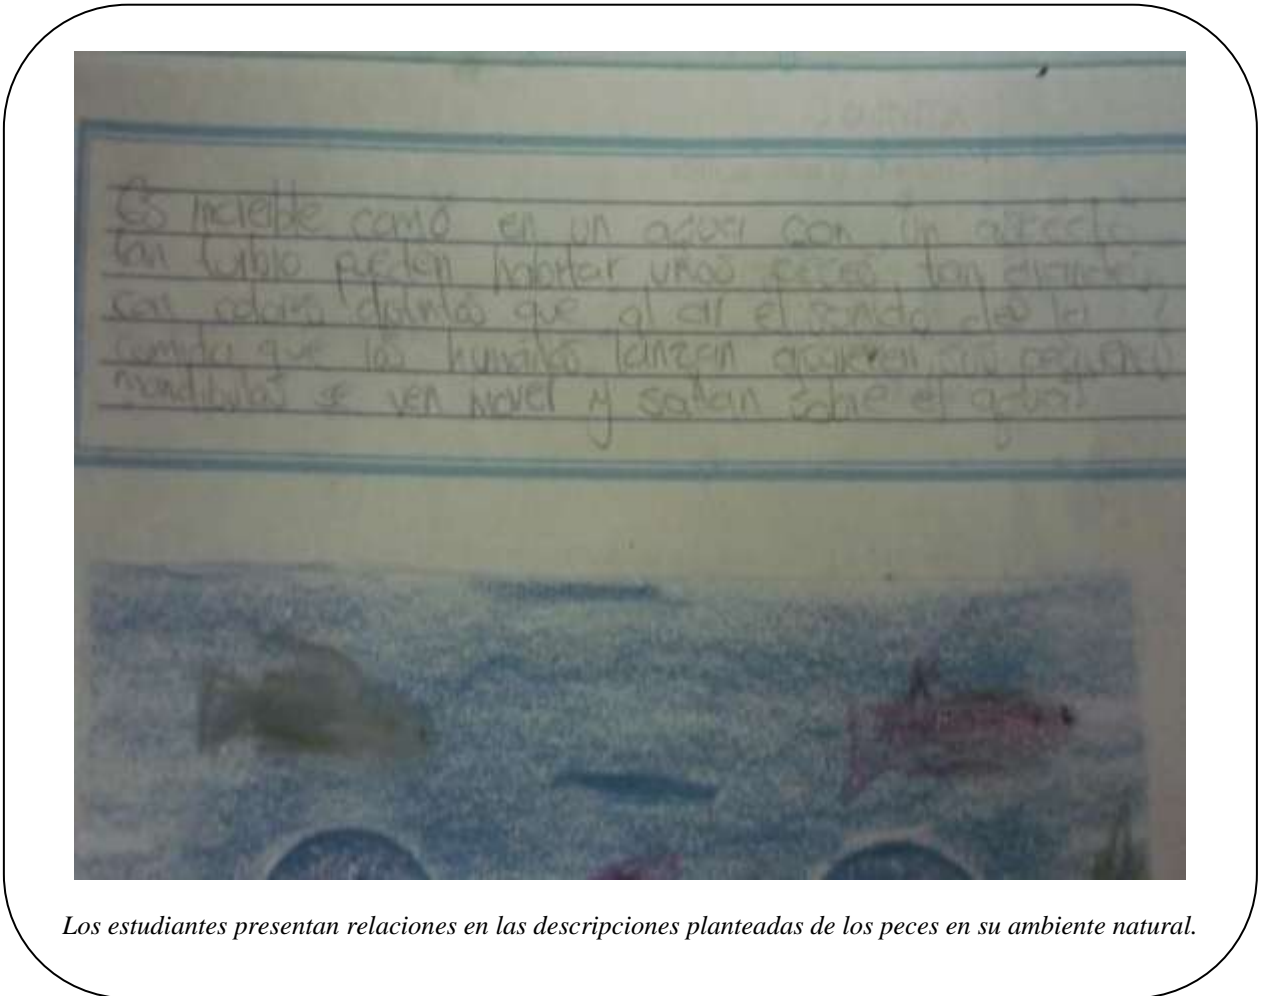 Es increible como en un agua con un aspecto
tan turbio pueden habitar unos peces tan grandes,
con colores distintos que al oir el sonido de la
comida que los humanos lanzan quieren sus pequeñas
mandibulas se ven mover y saltan sobre el agua.
Los estudiantes presentan relaciones en las descripciones planteadas de los peces en su ambiente natural.